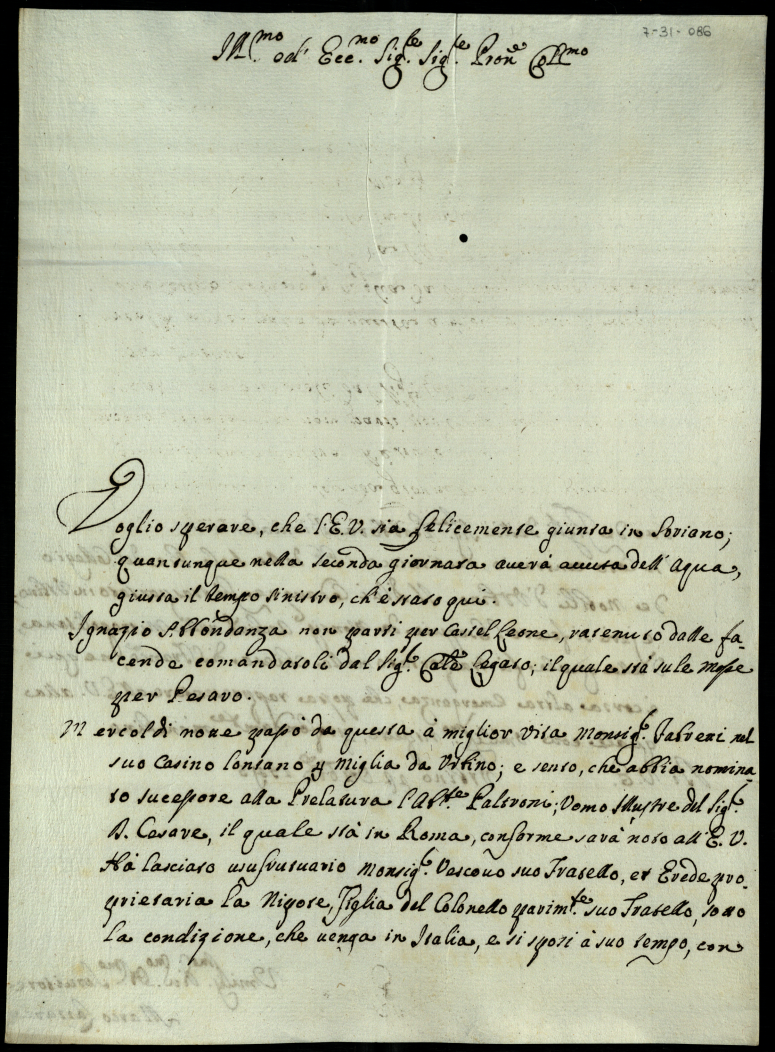 7-31-086
Ill.mo ed Ecc.mo Sig.re Sig.re Pron.e Col.mo
Voglio sperare, che l'E.V. sia felicemente giunta in Soriano;
quantunque nella seconda giornata averà avuta dell'Aqua,
giusta il tempo sinistro, ch'è stato qui.
Ignazio Abbondanza non partì per Castel Leone, ratenuto dalle fa-
cende comandateli dal Sig.r Cardle Legato; il quale stà sule mosse
per Pesaro.
Mercoldì note passò da questa à miglior Vita Monsig.r nel
suo Casino lontano 4 miglia da Urbino; e sento, che abbia nomina-
to sucessore alla Prelatura l'Ab.te Paltroni; Uomo Illustre del Sig.r
D. Cesare, il quale stà in Roma, conforme sarà noto all'E.V.
Hà lasciato usufrutuario Monsig.r Vescovo suo Fratello, et Erede pro-
prietaria la Nipote, Figlia del Colonello parim.te suo Fratello, sotto
la condizione, che venga in Italia, e si sposi à suo tempo, con